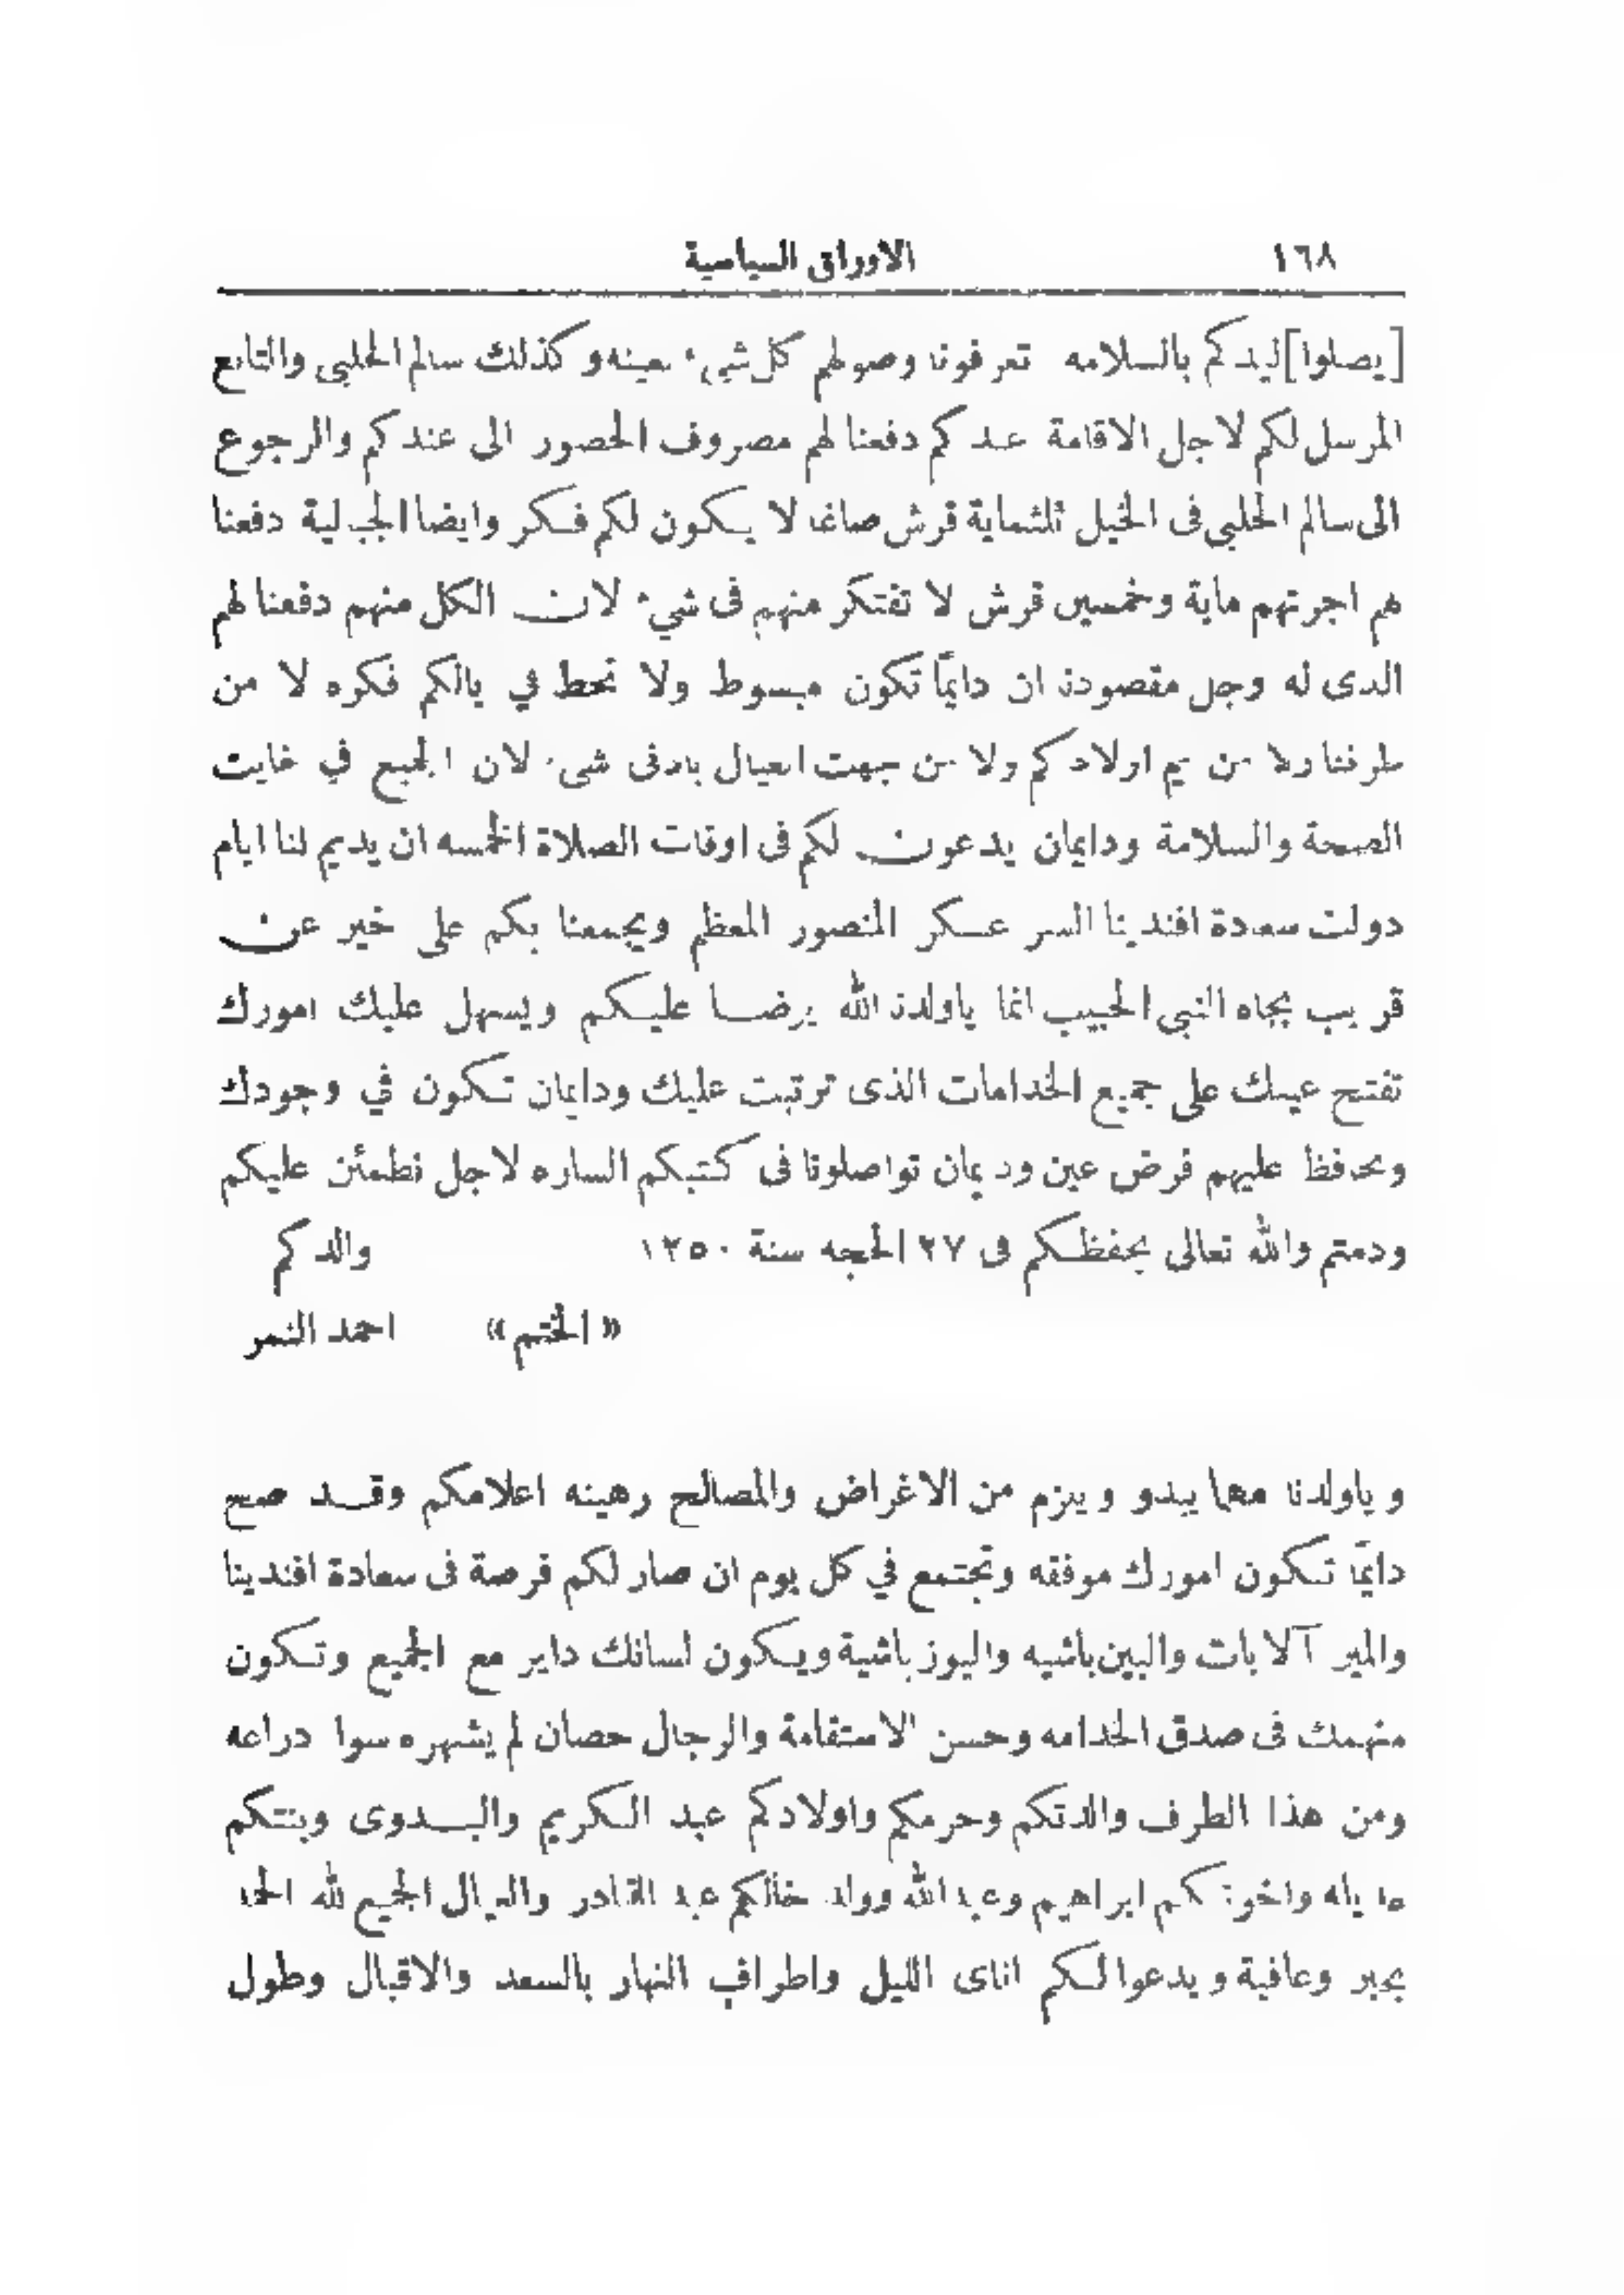 ١٦٨ الاوراق السياسية
[يصلوا] ليدكم بالسلامه تعرفونا وصولهم كل شيء بعينه وكذلك سالم الحلبى والتابع
المرسل لكم لاجل الاقامة عندكم دفعنا لهم مصروف الحصور الى عندكم والرجوع
الى سالم الحلبي فى الخيل ثلثماية قرش صاغا لا يكون لكم فكر وايضا الجبالية دفعنا
هم اجرتهم ماية وخمسين قرش لا تفتكر منهم فى شيء لان الكل منهم دفعنا لهم
الدى له وجل مقصودنا ان دايمًا تكون مبسوط ولا تحط في بالكم فكره لا من
طرفنا ولا من يم اولادكم ولا من جهت العيال بادنى شىء لان الجميع في غايت
الصحة والسلامة ودايمان يدعون لكم فى اوقات الصلاة الخمسه ان يديم لنا ايام
دولت سعادة افندينا السر عسكر المنصور المعظم ويجمعنا بكم على خير عن
قريب بجاه النبى الحبيب انما ياولدنا الله يرضا عليكم ويسهل عليك امورك
تفتح عينك على جميع الخدامات الذى ترتبت عليك ودايمان تكون في وجودك
وتحافظ عليهم فرض عين ودايمان تواصلونا فى كتبكم الساره لاجل نطمئن عليكم
ودمتم والله تعالى يحفظكم فى ٢٧ الحجه سنة ١٢٥٠ والدكم
« الختم » احمد النمر
وياولدنا مهما يبدو ويلزم من الاغراض والمصالح رهينه اعلامكم وقد صح
دايمًا تكون امورك موفقه وتجتمع في كل يوم ان صار لكم فرصة فى سعادة افندينا
والمير آلايات والبين باشيه واليوز باشية ويكون لسانك داير مع الجميع وتكون
منهمك فى صدق الخدامه وحسن الاستقامة والرجال حصان لم يشهره سوا دراعه
ومن هذا الطرف والدتكم وحرمكم واولادكم عبد الكريم والبدوى وبنتكم
واخوتكم ابراهيم وعبد الله وولد خالكم عبد القادر والعيال الجميع لله الحمد
بخير وعافية ويدعوا لكم اناى الليل واطراف النهار بالسعد والاقبال وطول